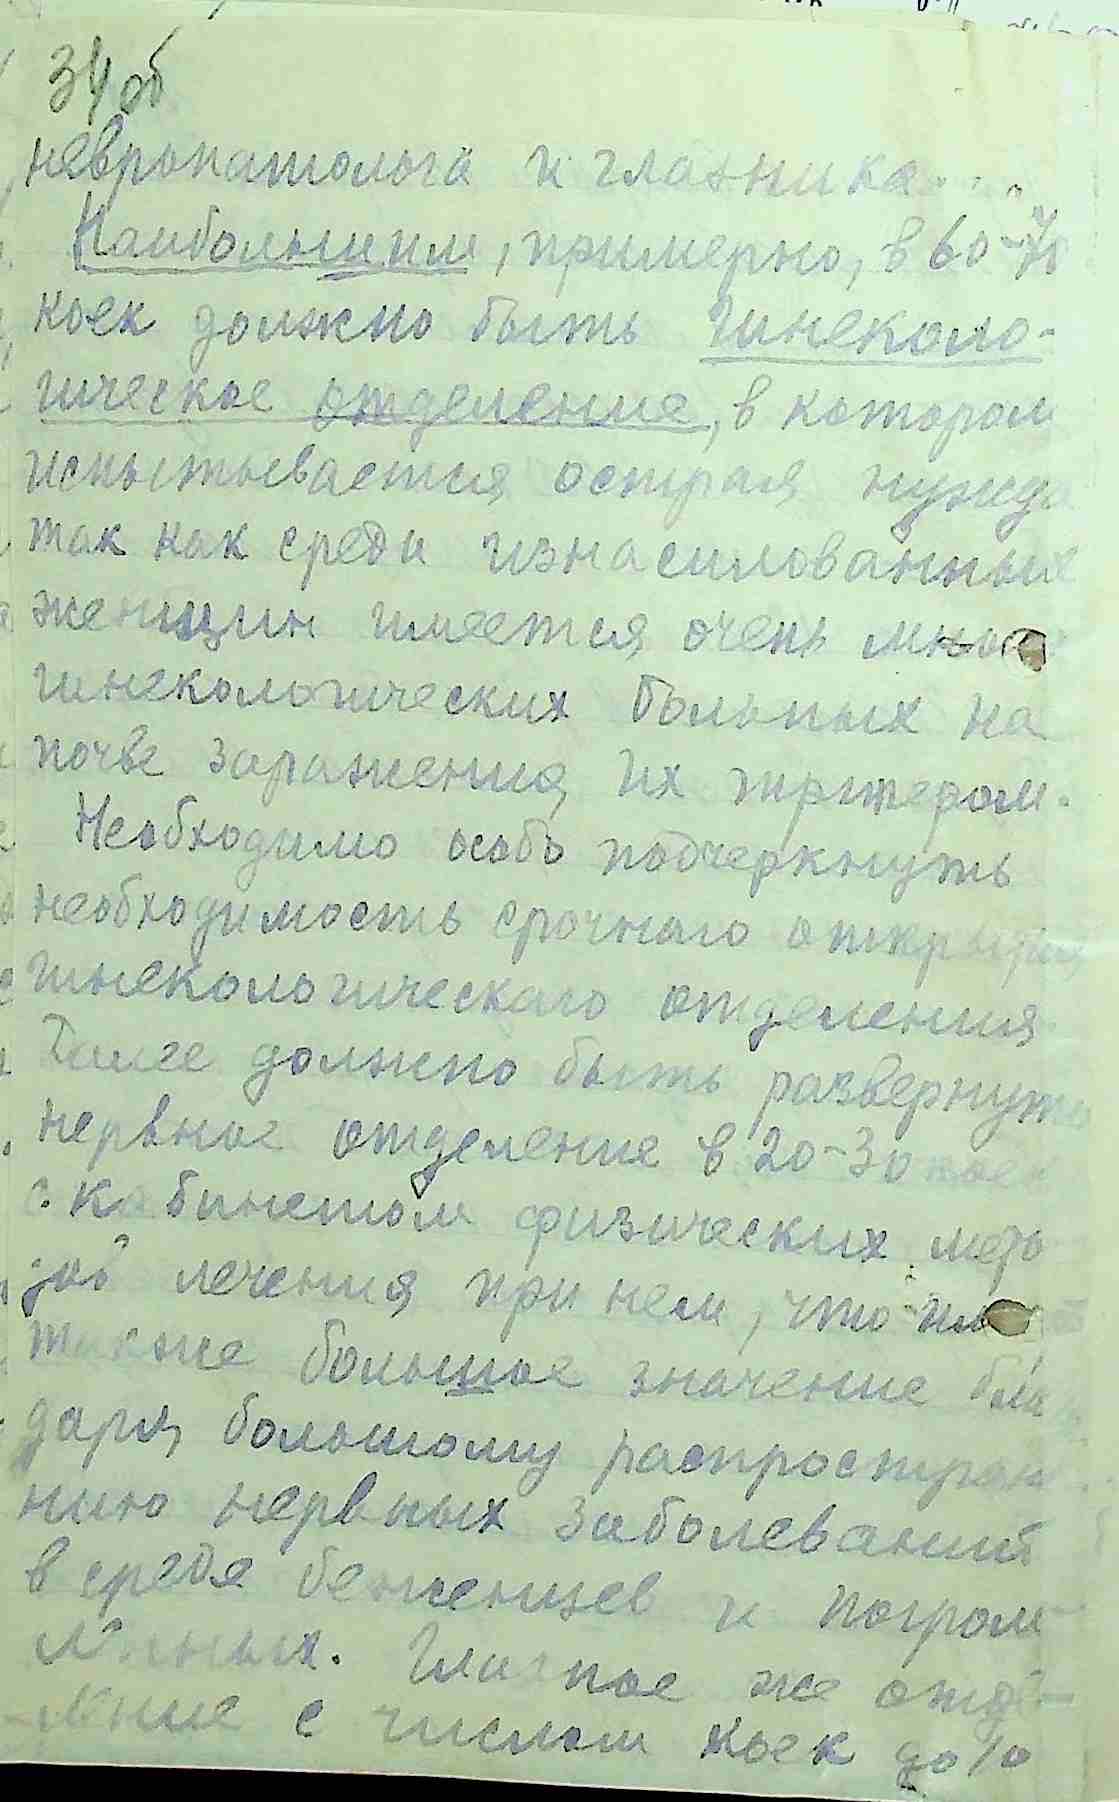 34 об
невропатолога и глазника...
Наибольшим, примерно, в 60-70
коек должно быть гинеколо-
гическое отделение, в котором
испытывается острая нужда
так как среди изнасилованных
женщин имеется очень много
гинекологических больных на
почве заражения их триппером.
Необходимо особо подчеркнуть
необходимость срочного открытия
гинекологического отделения.
Далее должно быть развернуто
нервное отделение в 20-30 коек
с кабинетом физических мето
дов лечения при нем, что
также большое значение благо
даря большому распростране
нию нервных заболеваний
в среде беженцев и погром
ленных. Глазное же отде-
ление с числом коек до 10